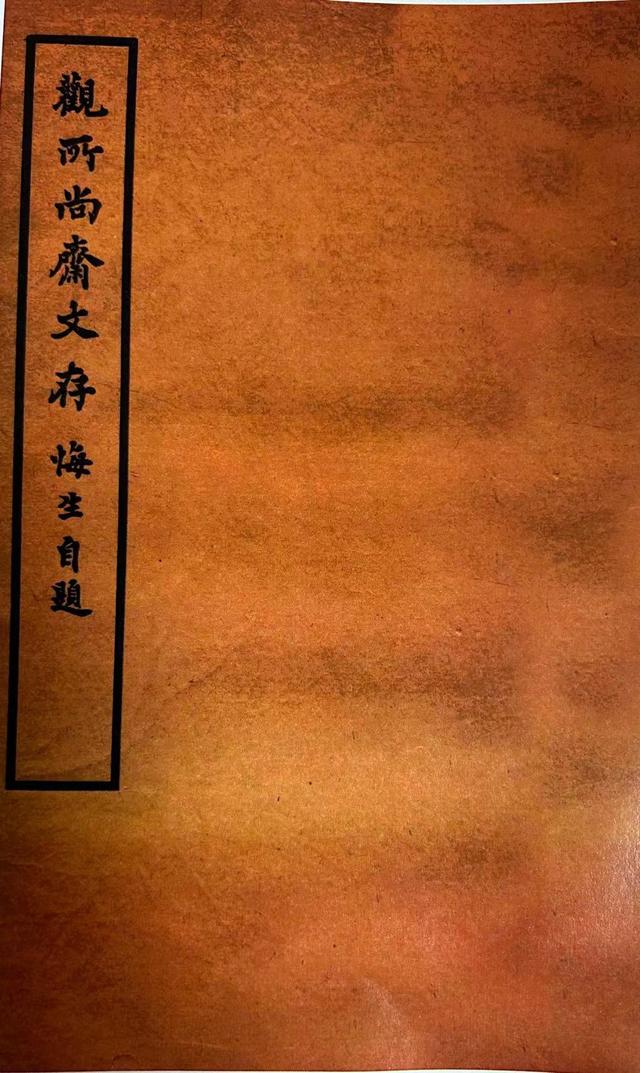 觀所尚齋文存 悔生自題